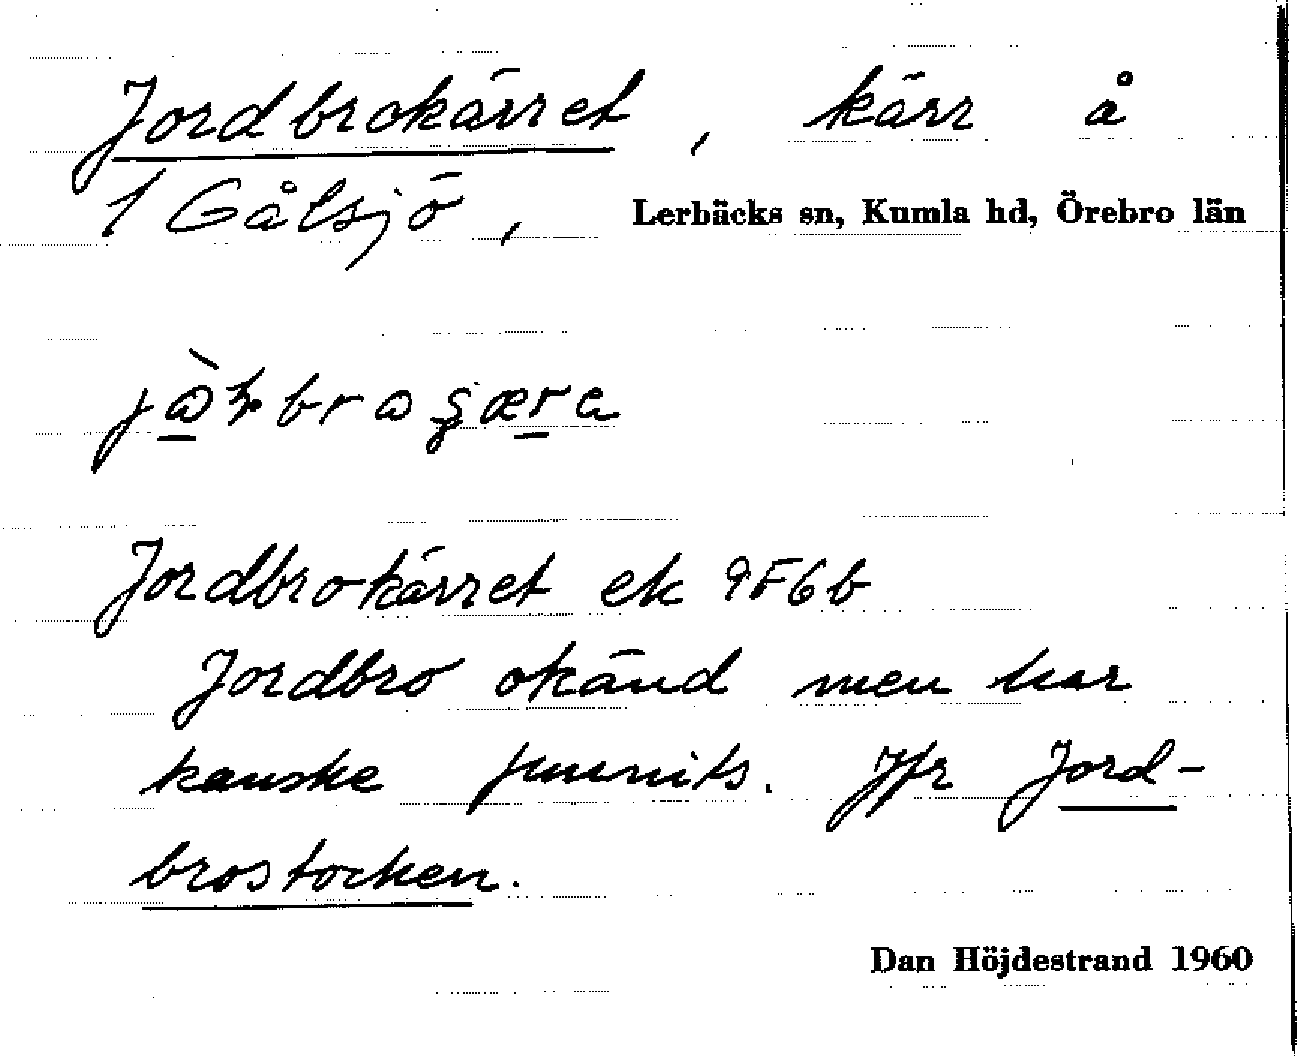 Jordbrokärret, kärr å
1 Gålsjö, Lerbäcks sn, Kumla hd, Örebro län
Jordbrokärret ek 9F6b
Jordbro okänd men har
kanske funnits. Jfr Jord-
brostocken.
Dan Höjdestrand 1960